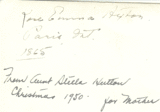 Emma Hutton
Paris
1865
From Aunt Stella Hutton
Christmas 1950 - for Mother